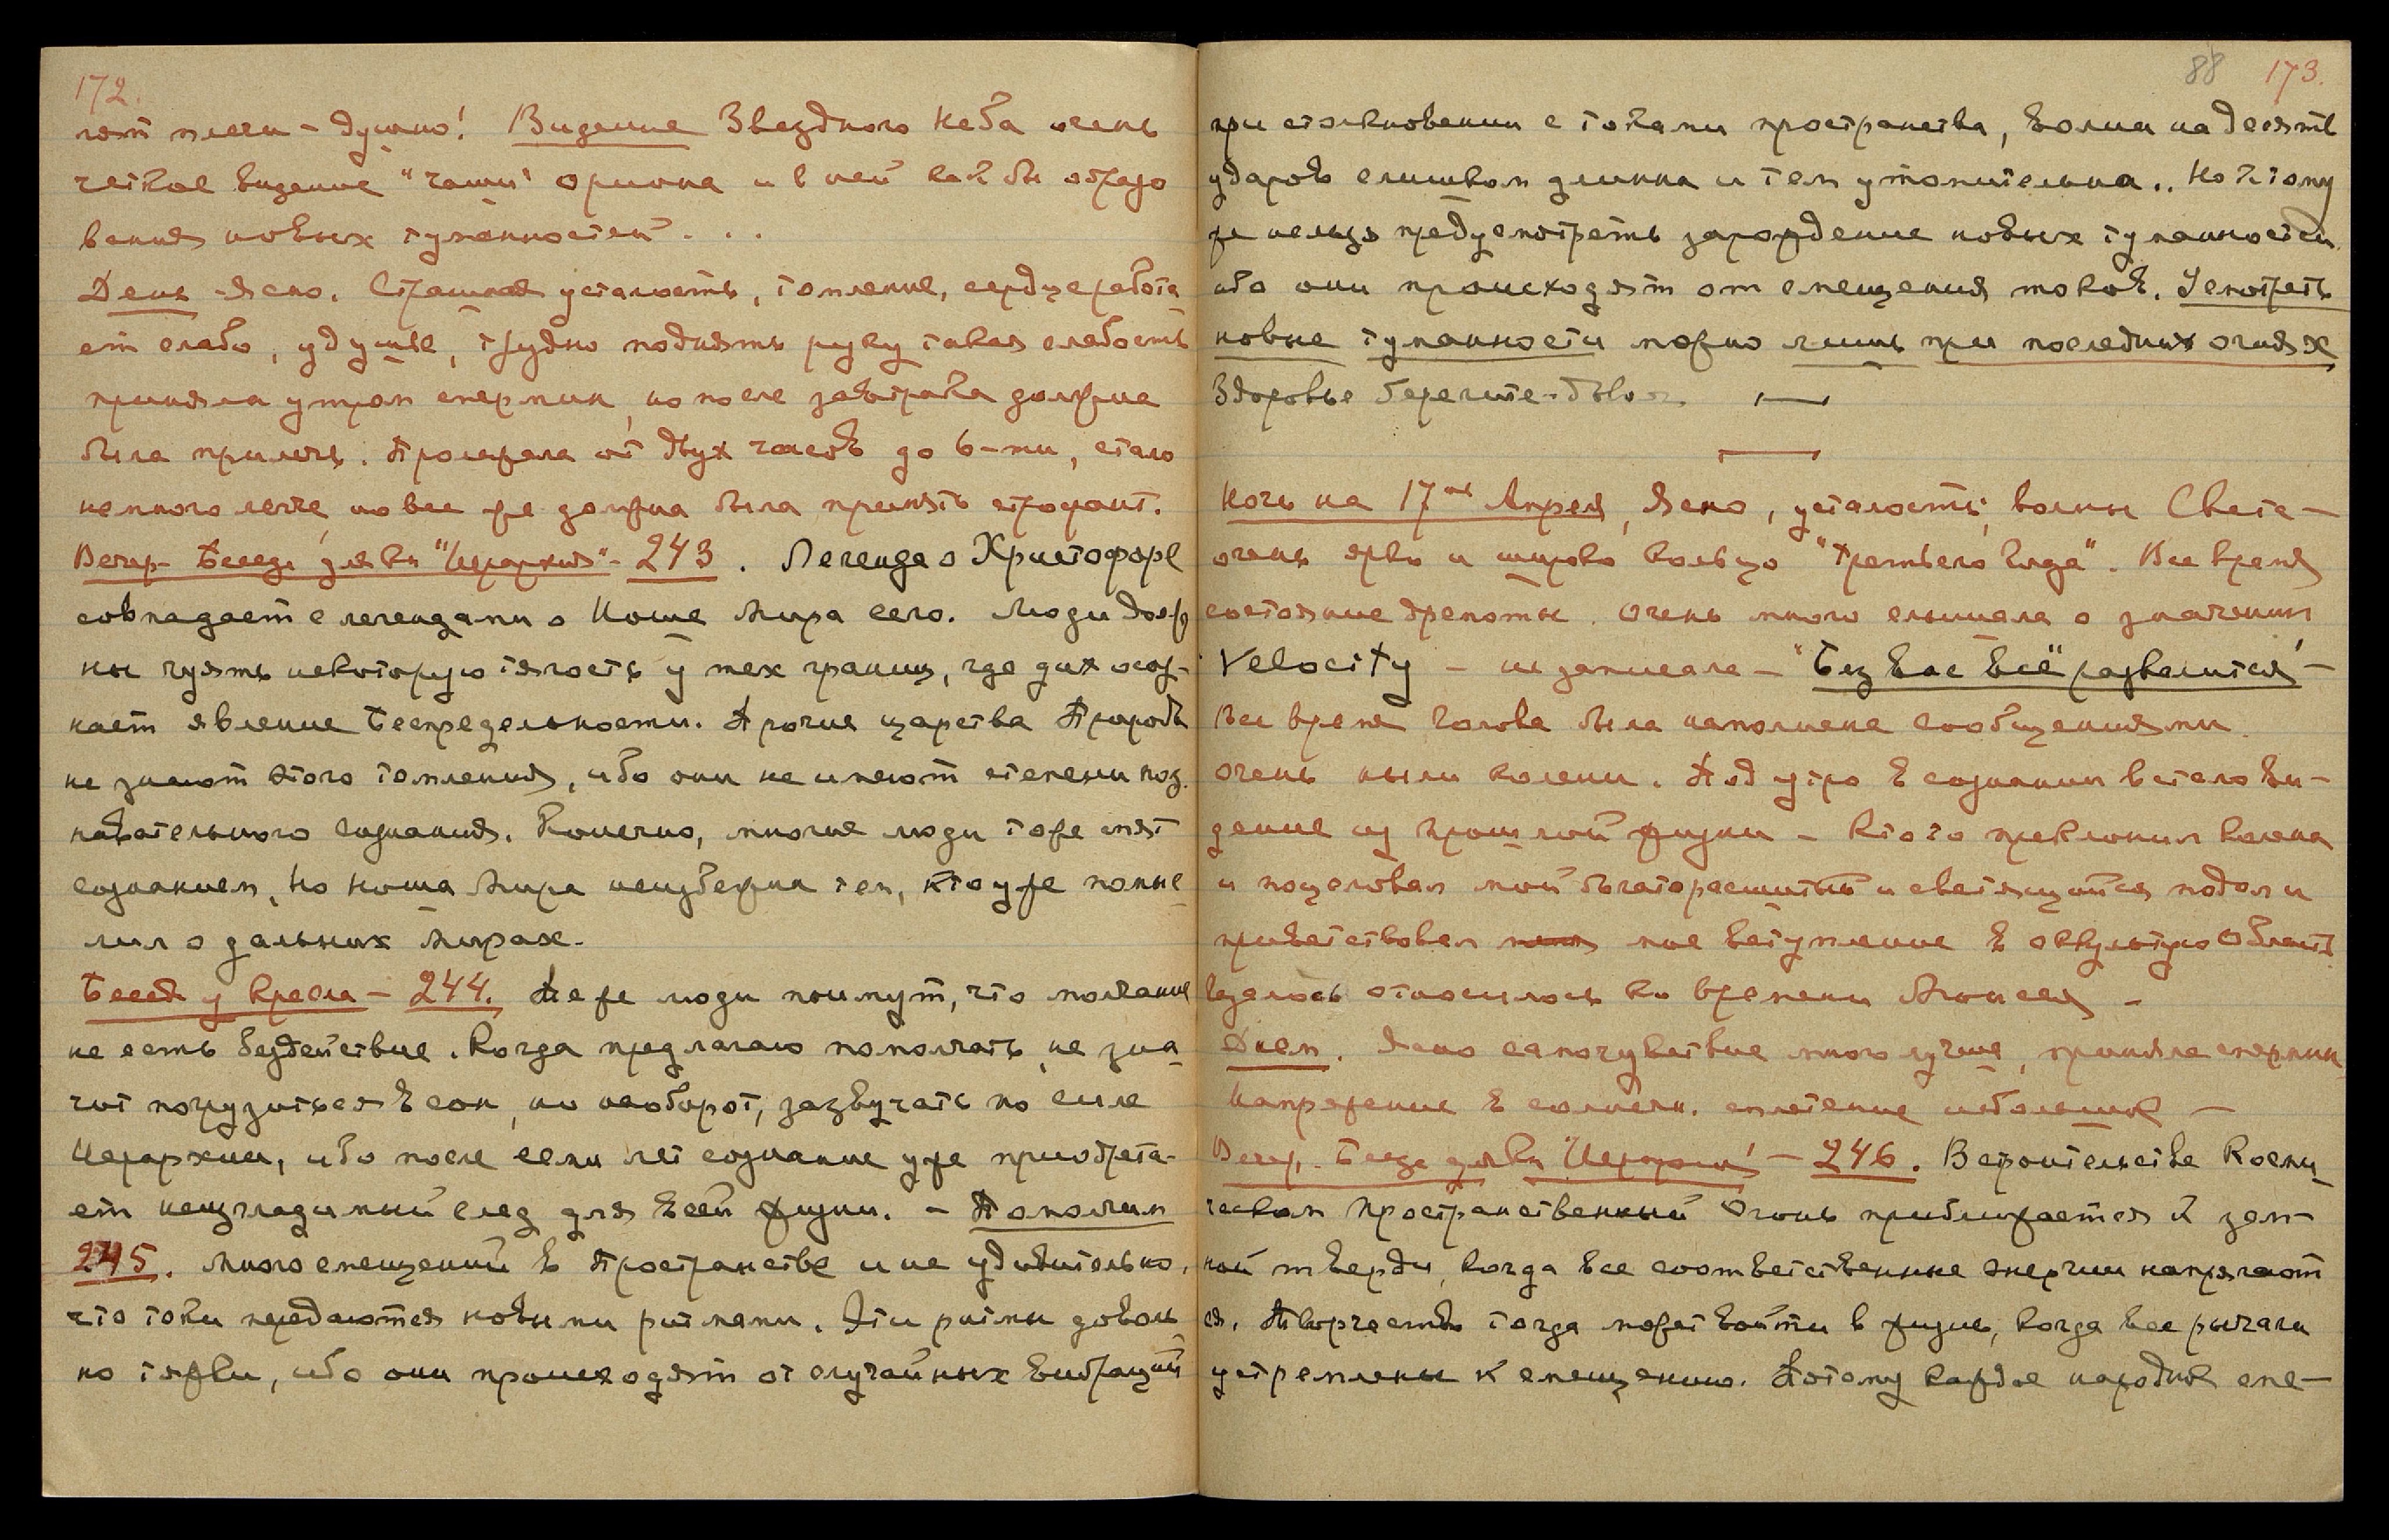 172.
лят плечи – душно! Видение Звездного Неба очень
четкое видение "чаши" Ориона и в ней как бы образо
вания новых туманностей . . .
День – Ясно. Страшная усталость, томление, сердце работа
ет слабо, удушье, трудно поднять руку такая слабость
приняла утром спермин, но после завтрака должна
была прилечь. Пролежала от двух часов до 6-ти, стало
немного легче, но все же должна была принять строфант.
Вечер – Беседа для кн "Иерархия" – 243. Легенда о Христофоре
совпадает с легендами о Ноше Мира сего. Люди долж
ны чуять некоторую тягость у тех границ, где дух осоз-
нает явление Беспредельности. Прочие царства Природы
не знают этого томления, ибо они не имеют степени поз-
навательного сознания. Конечно, многие люди тоже спят
сознанием, но Ноша Мира неизбежна тем, кто уже помыс
лил о дальних Мирах.
Беседа у Кресла – 244. Пе же люди поймут, что молчание
не есть бездействие. Когда предлагаю помолчать, не зна
чит погрузиться в сон, но наоборот, зазвучать по силе
Иерархии, ибо после семи лет сознание уже приобрета-
ет неизгладимый след для всей жизни. – Помолчим
245. Много смещений в Пространстве и не удивительно,
что токи передаются новыми ритмами. Эти ритмы доволь
но тяжки, ибо они происходят от случайных вибраций
88 173.
при столкновении с токами пространства, волна на десять
ударов слишком длинна и тем утомительна.. Но к тому
же нельзя предусмотреть зарождение новых туманностей,
ибо они происходят от смещения токов. Усмотреть
новые туманности можно лишь при последних огнях
Здоровье берегите
Ночь на 17ое Апреля, Ясно, усталость, волны Света –
очень ярко и широко кольцо "третьего Глаза". Все время
состояние дремоты. Очень много слышала о значении
Velocity – не записала – "Без вас всё развалится" –
все время голова была наполнена сообщениями
очень ныли колени. Под утро в сознании встало ви-
дение из прошлой жизни – кто то преклонил колена
и поцеловал мой богаторасшитый и светящийся подол и
приветствовал мое вступление в оккультную Область
казалось относилось ко времени Моисея –
Днем. Ясно самочувствие много лучше, приняла спермин
Напряжение в солнечн. сплетение небольшое –
Вечер. Беседа для кн "Иерархия" – 246. В строительстве Косми
ческом Пространственный Огонь приближается к зем-
ной тверди, когда все соответственные энергии напрягают
ся. Творчество тогда может войти в жизнь, когда все рычаги
устремлены к смещению. Потому каждое народное сме-